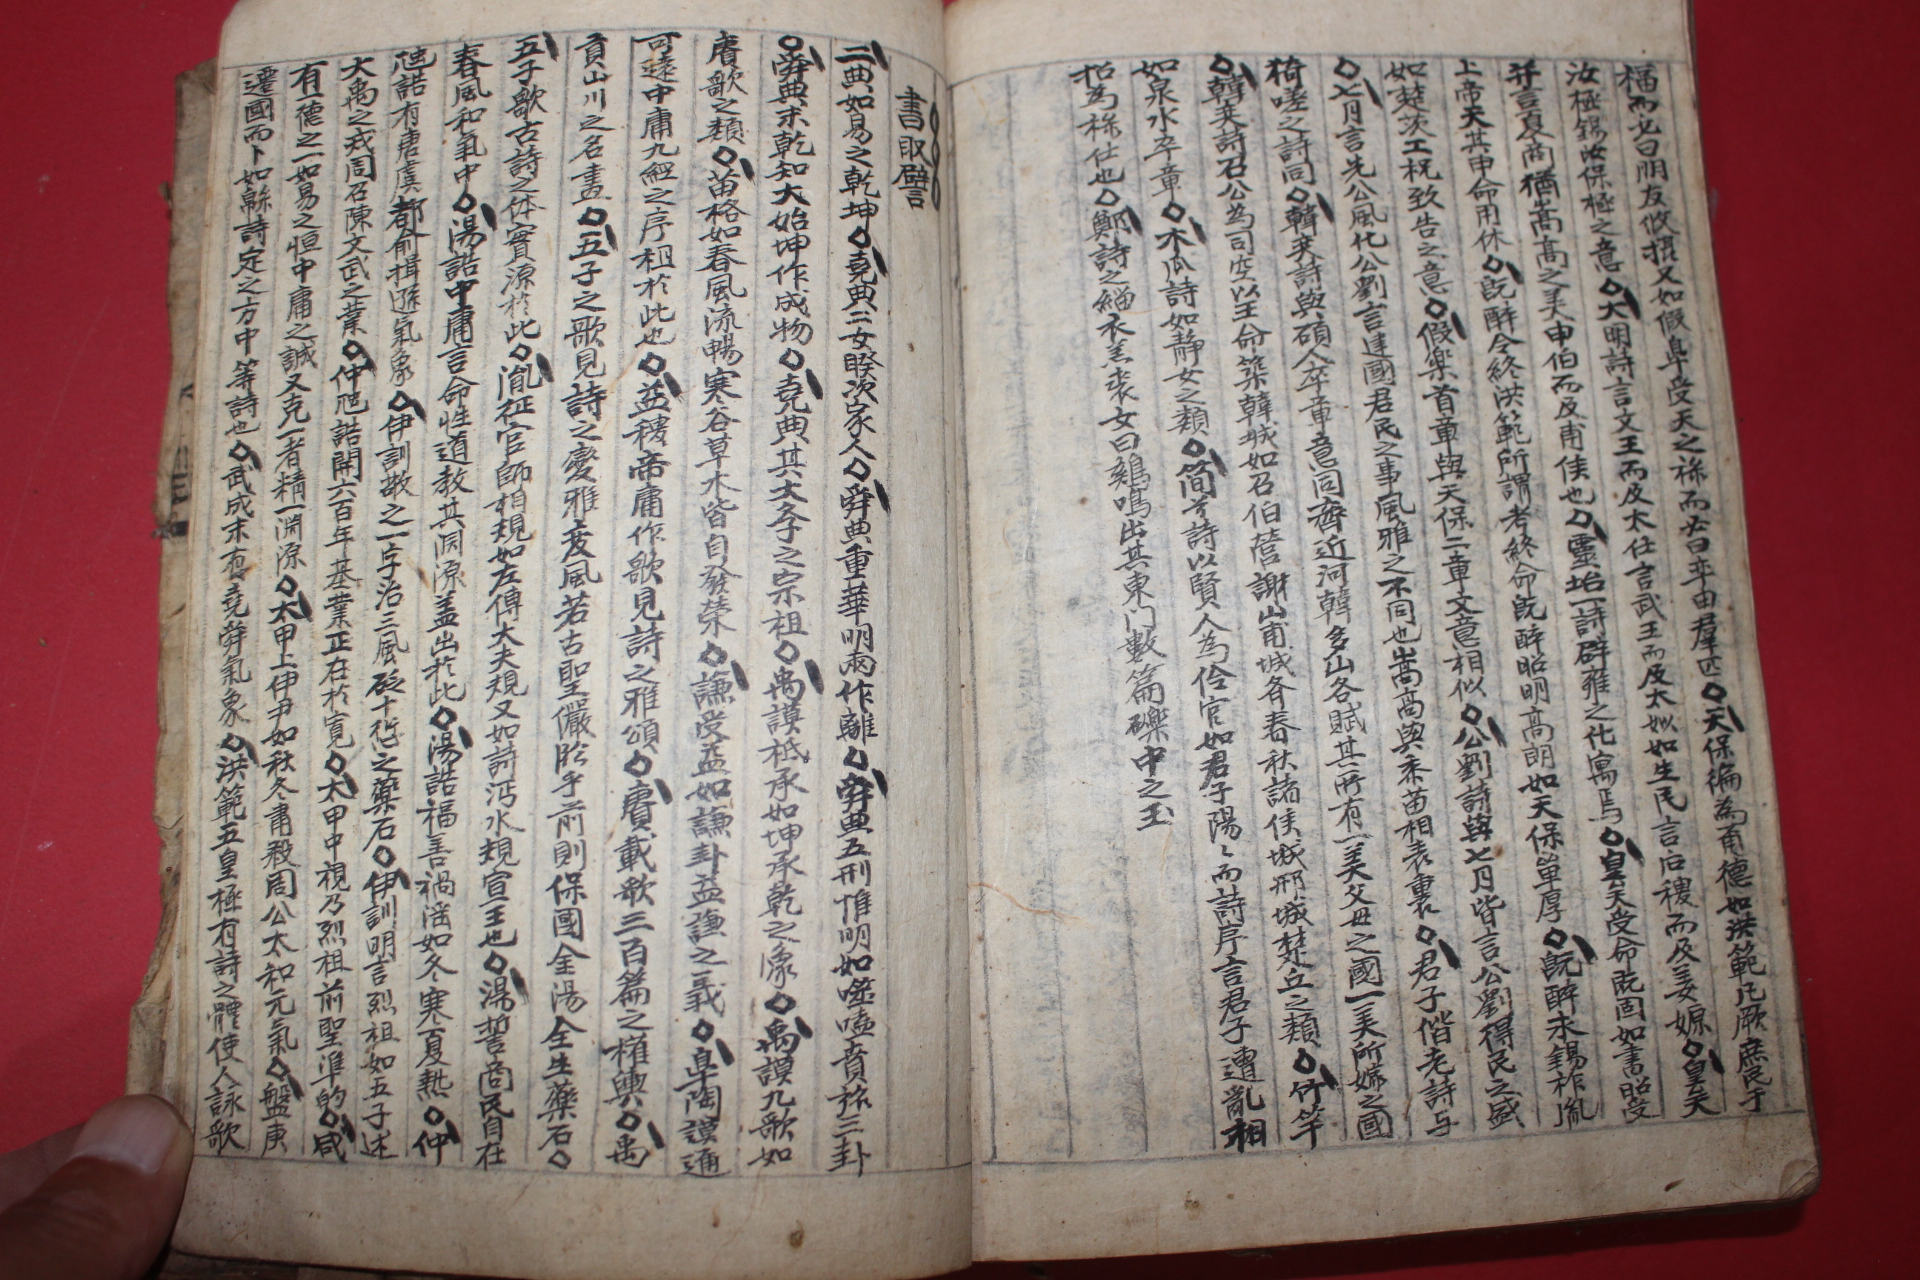 福而必曰朋友攸攝又如假阜受天之祿而必曰率由羣匹◇天保徧為爾德如洪範凡厥庶民于
汝極錫汝保極之意◇大明詩言文王而及太任言武王而及太姒如生民言后稷而及姜嫄◇皇矣
幷言夏商猶崧高之美申伯而反甫侯也◇靈坮詩辟雍之化寓焉◇皇天受命旣固如書昭受
上帝天其申命用休◇旣醉令終洪範所謂考終命旣醉昭明高朗如天保單厚◇旣醉永錫祚胤
如楚茨工祝致告之意◇假樂首章與天保二章文意相似◇公劉詩與七月皆言公劉得民之盛
◇七月言先公風化公劉言建國君民之事風雅之不同也崧高與黍苗相表裏◇君子偕老詩与
猗嗟之詩同◇韓奕詩與碩人卒章意同齊近河韓多山各賦其所有一美父母之國一美所嫁之國
◇韓奕詩召公為司空以王命築韓城如召伯營謝山甫城齊春秋諸侯城邢城楚丘之類◇竹竿
如泉水卒章◇木瓜詩如靜女之類◇簡兮詩以賢人為伶官如君子陽〻而詩序言君子遭亂相
招為祿仕也◇鄭詩之緇衣羔裘女曰鷄鳴出其東門數篇礫中之玉
書取譬
二典如易之乾坤◇堯典二女睽次家人◇舜典重華明兩作離◇舜典五刑惟明如噬嗑賁旅三卦
◇舜典末乾知大始坤作成物◇堯典其大學之宗祖◇禹謨祗承如坤承乾之像◇禹謨九歌如
賡歌之類◇苗格如春風流暢寒谷草木皆自發榮◇謙受益如謙卦益謙之義◇皐陶謨邇
可遠中庸九經之序祖於此也◇益稷帝庸作歌見詩之雅頌◇賡載歌三百篇之權輿◇禹
貢山川之名畫◇五子之歌見詩之變雅變風若古聖儼臨乎前則保國全湯全生藥石◇
五子歌古詩之体實源於此◇胤征官師相規如左傳大夫規又如詩沔水規宣王也◇湯誓商民自在
春風和氣中◇湯誥中庸言命性道敎其淵源盖出於此◇湯誥福善禍滛如冬寒夏熱◇仲
虺誥有唐虞都俞揖遜氣象◇伊訓敬之一字治三風砭十愆之藥石◇伊訓明言烈祖如五子述
大禹之戎周召陳文武之業◇仲虺誥開六百年基業正在於寬◇太甲中視乃烈祖前聖準的◇咸
有一德之一如易之恒中庸之誠又克一者精一淵源◇太甲上伊尹如秋冬肅殺周公太和元氣◇盤庚
遷國而卜如緜詩定之方中等詩也◇武成末有堯舜氣象◇洪範五皇極有詩之體使人詠歌